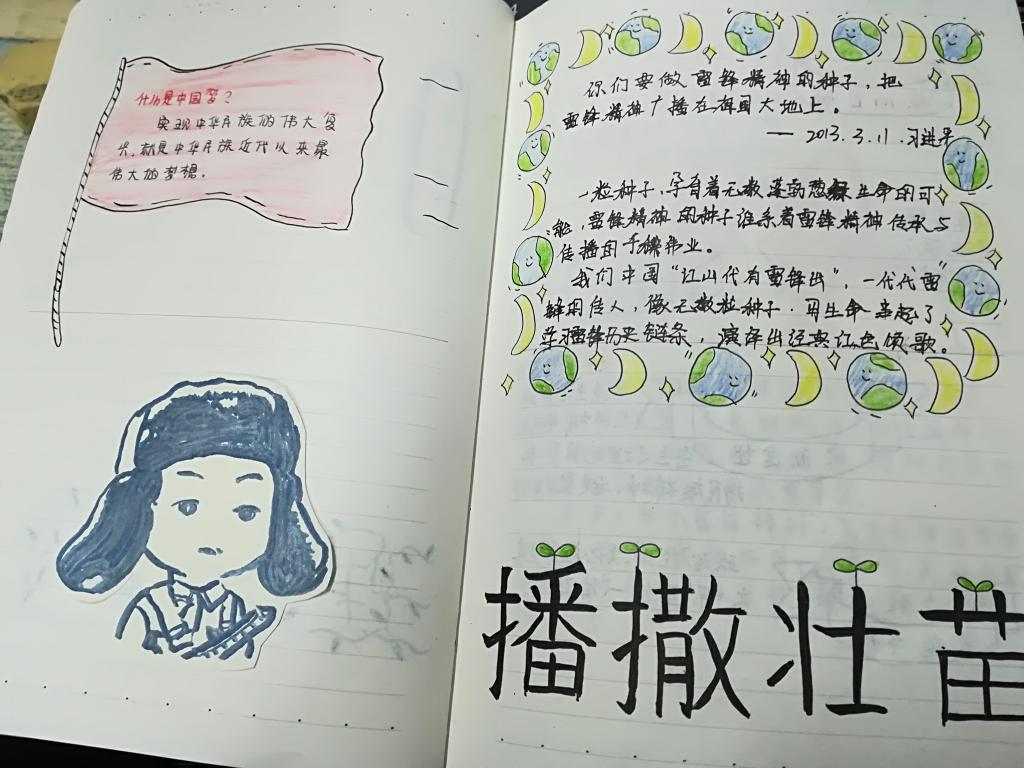 什么是中国梦？
实现中华民族的伟大复
兴，就是中华民族近代以来最
伟大的梦想。
你们要做雷锋精神的种子，把
雷锋精神广播在祖国大地上。
—— 2013.3.11 习近平
一粒种子，孕育着无数蓬勃 生命的可
能，雷锋精神的种子维系着雷锋精神传承与
传播的 伟业。
我们中国“江山代有雷锋出”，一代代雷
锋的传人，像无数粒种子．用生命 起了
学习雷锋历史链条，演绎出经典红色颂歌。
播撒壮苗